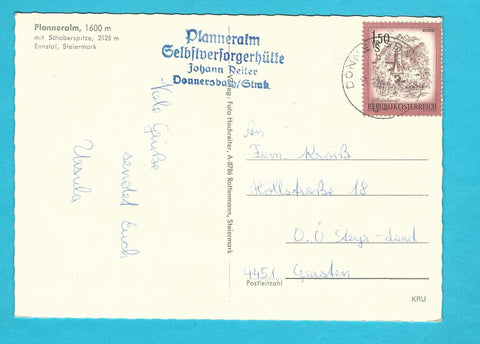 Planneralm, 1600 m
mit Schoberspitze, 2125 m
Ennstal, Steiermark
Planneralm
Selbstversorgerhütte
Johann Reiter
Donnersbach/Stmk.
1.50
REPUBLIK ÖSTERREICH
DONNE
Viele Grüße
sendet Euch
Ursula
Verlag: Foto Hochreiter, A-8786 Rottenmann, Steiermark
An
Fam. Kroiß
Höllstraße 18
O.Ö Steyr-Land
4451 Garsten
Postleitzahl
KRU